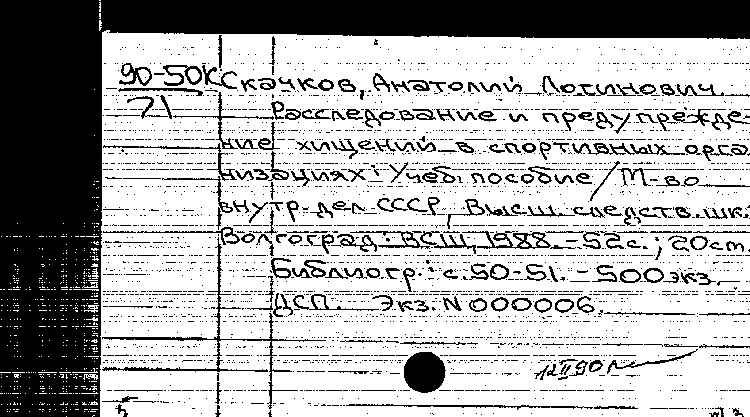 90-50К Скачков, Анатолий Логинович.
71
Расследование и предупрежде-
ние хищений в спортивных орга
низациях: Учеб. пособие / М-во
внутр. дел СССР, Высш. следств. шк.
Волгоград: ВСШ, 1988. - 52 с.; 20 см.
Библиогр.: с. 50-51. - 500 экз.
ДСП. Экз. N 000006.